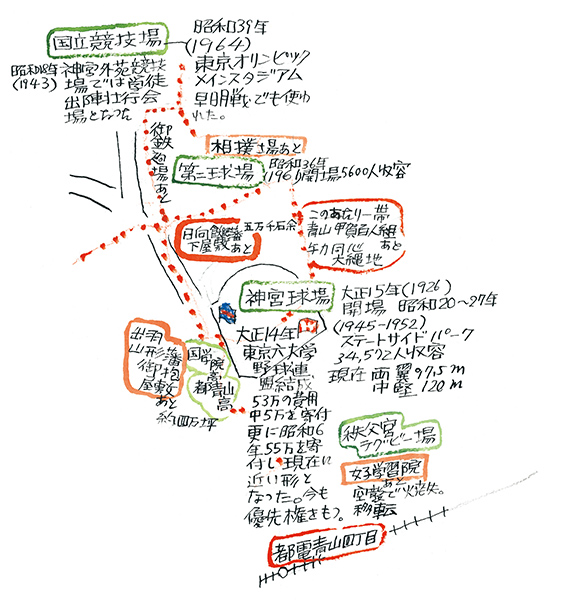 国立競技場
昭和39年
(1964)
東京オリンピック
メインスタジアム
早明戦でも使わ
れた。
昭和18年
(1943)
神宮外苑競技
場では学徒
出陣壮行会
場となった
御鉄砲場あと
相撲場あと
第二球場
昭和36年
(1961)開場5600人収容
日向飫肥藩
下屋敷
あと
五万千石余
このあたり一帯
青山甲賀百人組
与力同心あと
大縄地
神宮球場
大正15年(1926)
開場 昭和20~27年
(1945-1952)
ステートサイドパーク
34,572人収容
現在 両翼97,5m
中堅 120m
大正14年
東京六大学
野球連
盟結成
53万の費用
中5万を寄付
更に昭和6
年55万を寄
付し現在に
近い形と
なった。今も
優先権をもつ。
出羽
山形藩
御抱
屋敷
あと
約四万坪
国学院高
都青山高
秩父宮
ラグビー場
女子学習院
あと
空襲で焼失。
移転
都電青山四丁目